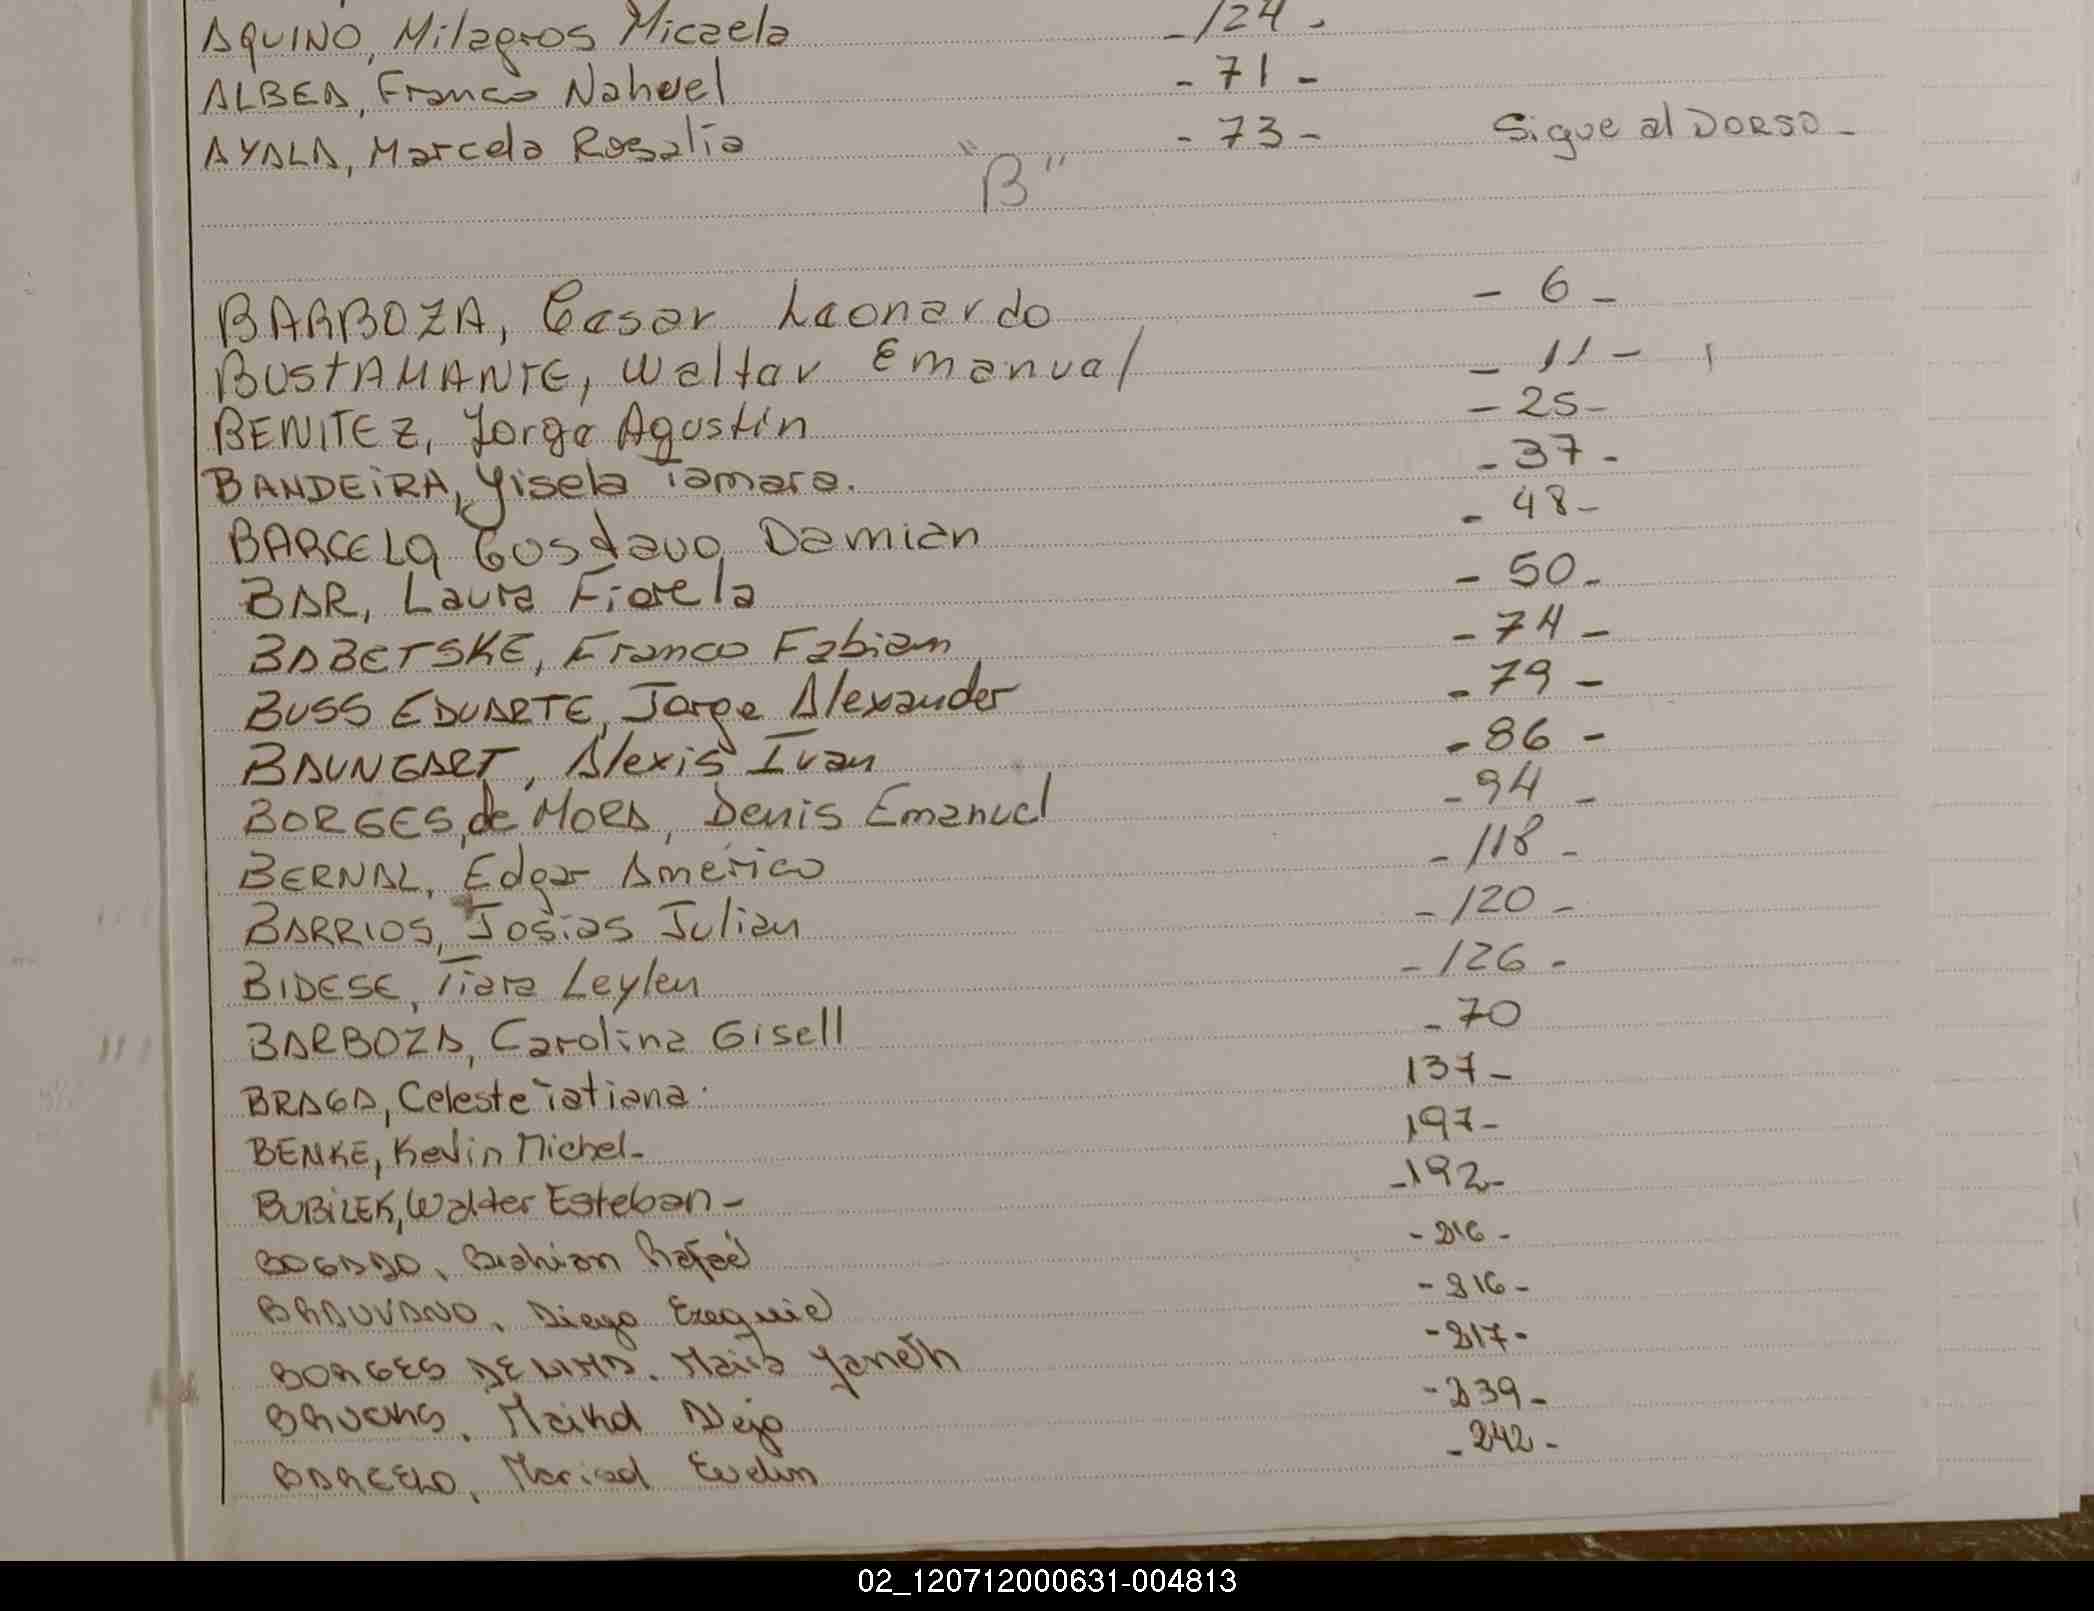 AQUINO, Milagros Micaela -124-
ALBEA, Franco Nahuel -71-
AYALA, Marcela Rosalia -73- Sigue al DORSO-
"B"
BARBOZA, Cesar Leonardo - 6 -
BUSTAMANTE, Walter Emanuel - 11 -
BENITEZ, Jorge Agustin - 25-
BANDEIRA, Yisela Tamara. - 37 -
BARCELO, Gustavo Damian - 48-
BAR, Laura Fiorela - 50-
BABETSKE, Franco Fabian - 74 -
BUSS EDUARTE, Jorge Alexander - 79 -
BAUNGART, Alexis Ivan - 86 -
BORGES, de MORA, Denis Emanuel - 94 -
BERNAL, Edgar Américo - 118 -
BARRIOS, Josias Julian - 120 -
BIDESE, Tiara Leylen - 126 -
BARBOZA, Carolina Gisell - 70
BRAGA, Celeste Tatiana. 137-
BENKE, Kevin Michel- 197-
BUBILEK, Walter Esteban- -192-
BOGADO, Rafael - 216 -
Diego Ezequiel - 216 -
BORGES DE LIMA. Maira Janeth - 217-
- 239 -
BARCELO, Marisol Evelin - 242 -
02_120712000631-004813